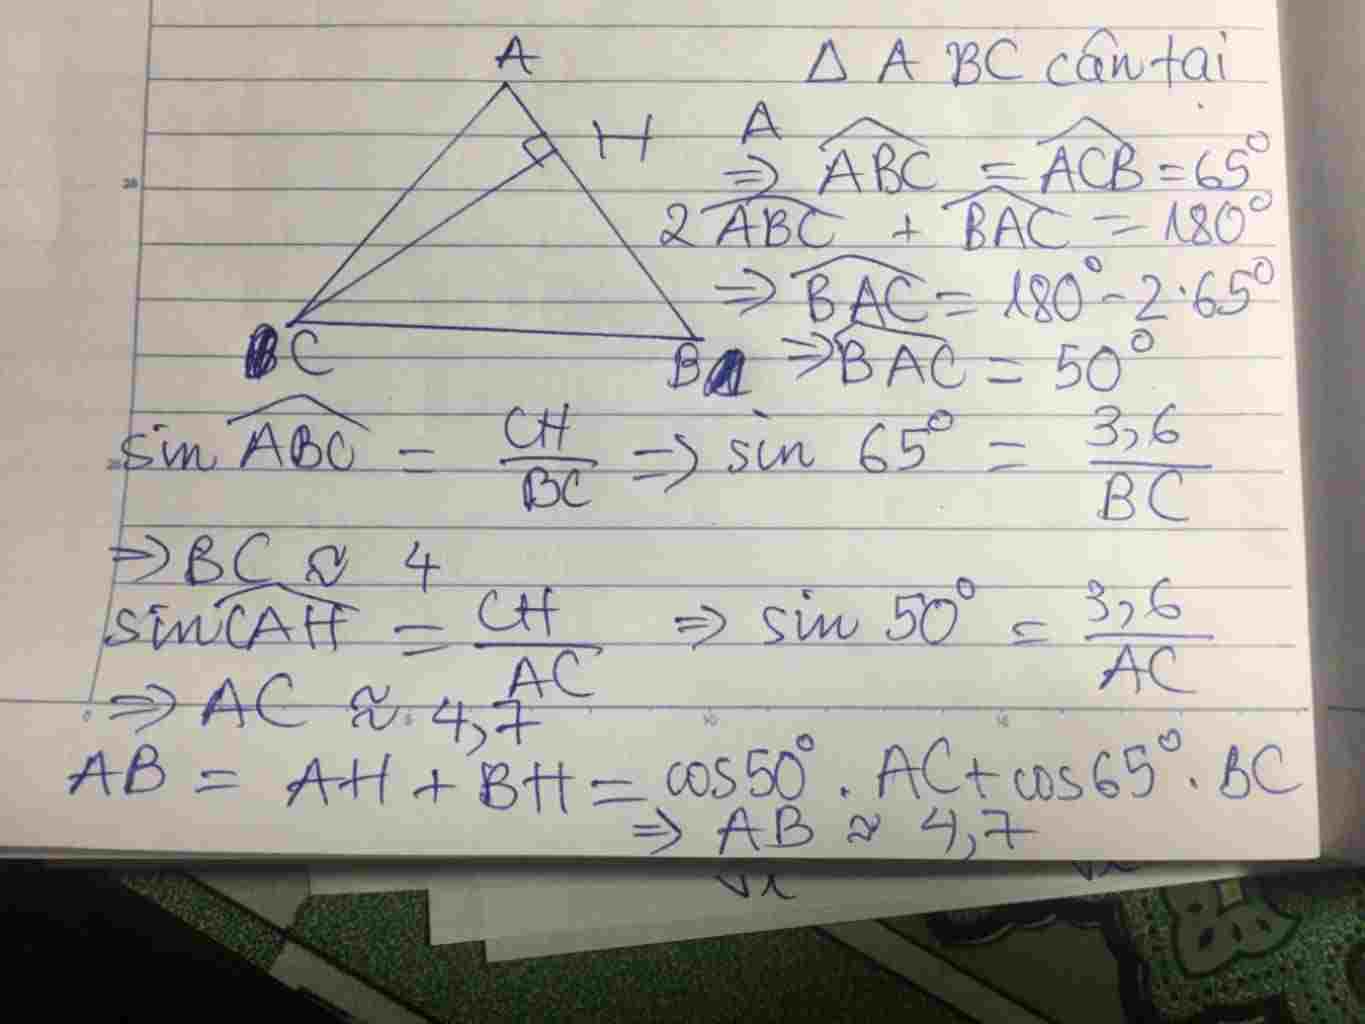 A
Δ ABC cân tại
H A
⇒ ∠ABC = ∠ACB = 65°
2∠ABC + ∠BAC = 180°
⇒ ∠BAC = 180° - 2·65°
C B ⇒ ∠BAC = 50°
sin ∠ABC = CH/BC ⇒ sin 65° = 3,6/BC
⇒ BC ≈ 4
sin ∠CAH = CH/AC ⇒ sin 50° = 3,6/AC
⇒ AC ≈ 4,7
AB = AH + BH = cos50° . AC + cos65° . BC
⇒ AB ≈ 4,7